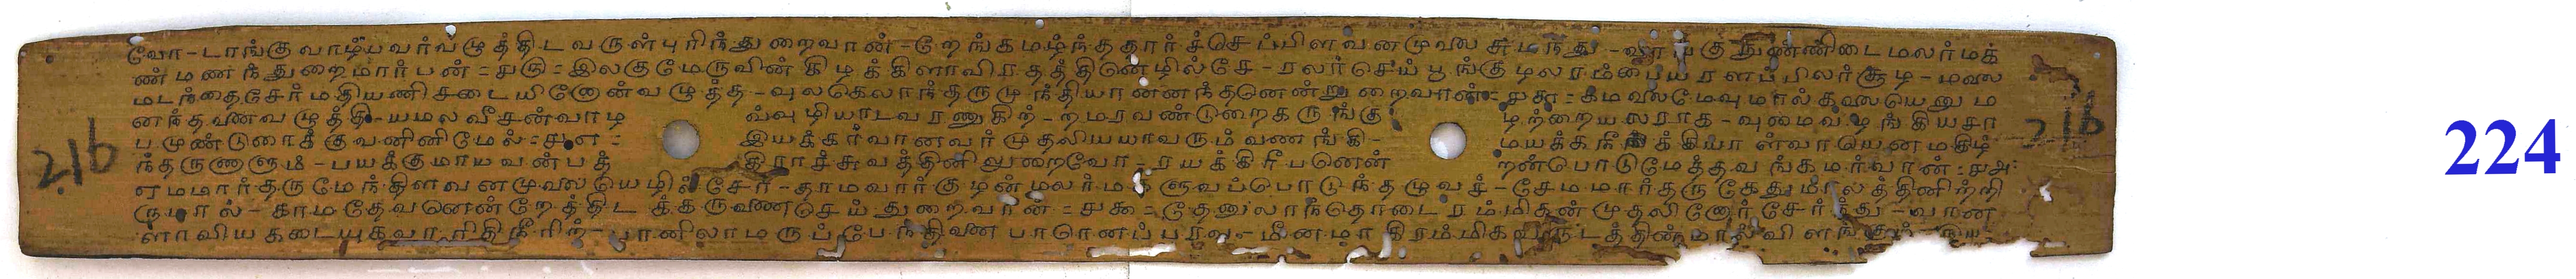 வோ-டாங்கு வாழ்யவர்வழுத்திட வருள்புரிந்துறைவான்-றேங்கமழ்ந்ததார்ச்செப்பிளவனமுலை சுமந்து- நுண்ணிடை மலர்மக்
ண்மணந்துறைமார்பன்=௰௫=இலகுமேருவின் கிழக்கிளாவிரதத்தினெழில்சேர்-ரலர்செய் பூங்குழலரம்பைய ரளப்பிலர்சூழ-மலை
மடந்தைசேர்மதியணி சடையினோன்வழுத்த-வுலகெலாந்தருமுந்தியானனந்தனென்றுறைவான்=௰௬= மேவுமால் ம
னந்தவணவழுத்தி-யமலவீசன்வாழ வ்வுழியாடவரணுகிற்-றமரவண்டுறைகருங்கு ழற்றையலராக-வுமைவழங்கியசா
பமுண்டுரைக்குவனினிமேல்=௰௭= இயக்கர்வானவர் முதலியயாவரும்வணங்கி- மயக்கநீ க்கியாள்வாயென மகிழ்
ந்தருணளும்-பயக்குமாயவன்பத் திராச்சுவத்தினிலுறைவோ-ரயக்கிரீபனென் றன்பொடுமேத்தவ ங்கமர்வான்:௰௮:
ஏமமார்தருமேந்திளவனமுலை யெழில்சேர்-தாமவார்குழன்மலர்ம ளுவப்பொடுந்தழுவச்-சேமமார்தருகேதுமாலத்தினிற்றி
ருமால்-காமதேவனென்றேத்திட க்கருணைசெய்துறைவான்=௰௯=தேனுலாந்தொடை ரம்மிகன்முதலினோர்சேர்ந்து-வான
ளாவிய கடையுகவாரிதிநீரிற்- பானிலாமருப்பேந்திவண பாடானப்பரவு-மீனமா கிரம்மிக வருடத்தின்மால்விளங்கும்